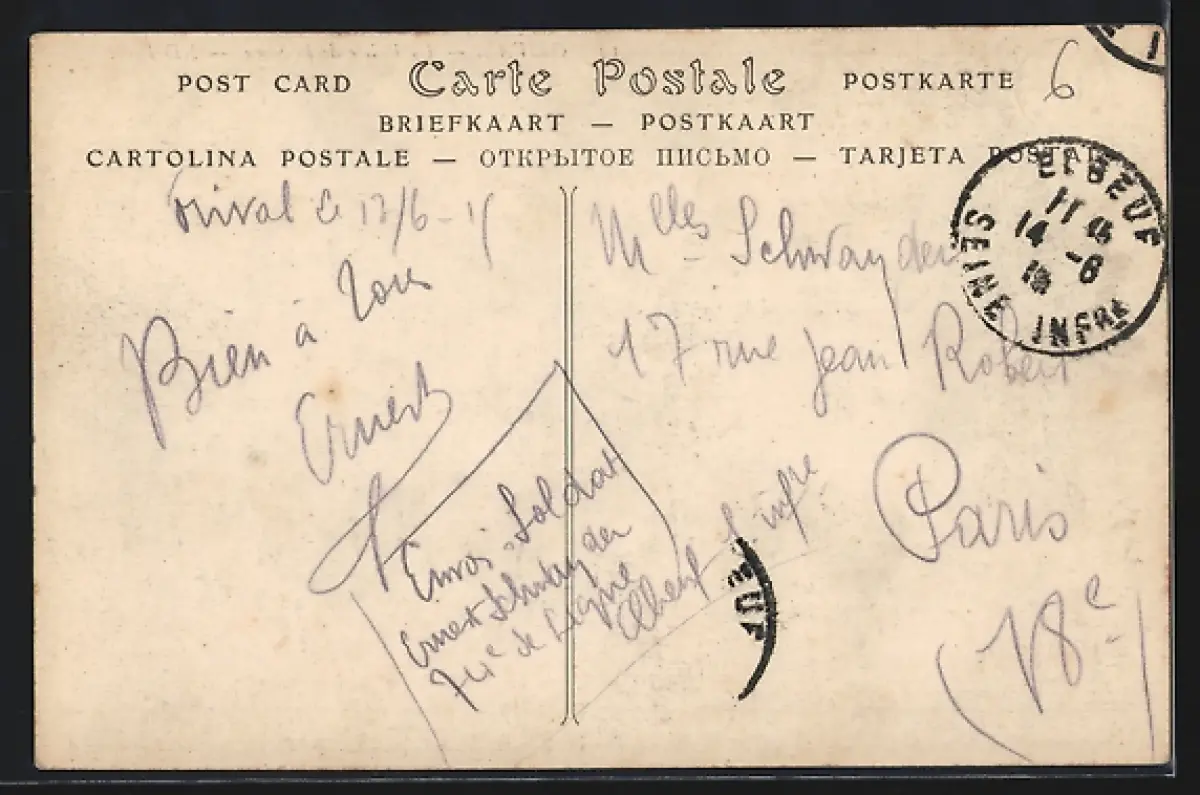 POST CARD Carte Postale POSTKARTE
6
BRIEFKAART — POSTKAART
CARTOLINA POSTALE — ОТКРЫТОЕ ПИСЬМО — TARJETA POSTALE
le 13/6-15
Bien à tous
Ernest
Envoi Soldat
Ernest Schwayder
74e de Ligne
Elbeuf S. infre
Mlles Schwayder
17 rue Jean Robert
Paris
(18e)
ELBEUF
11
14 -6
SEINE INFRE
EUF